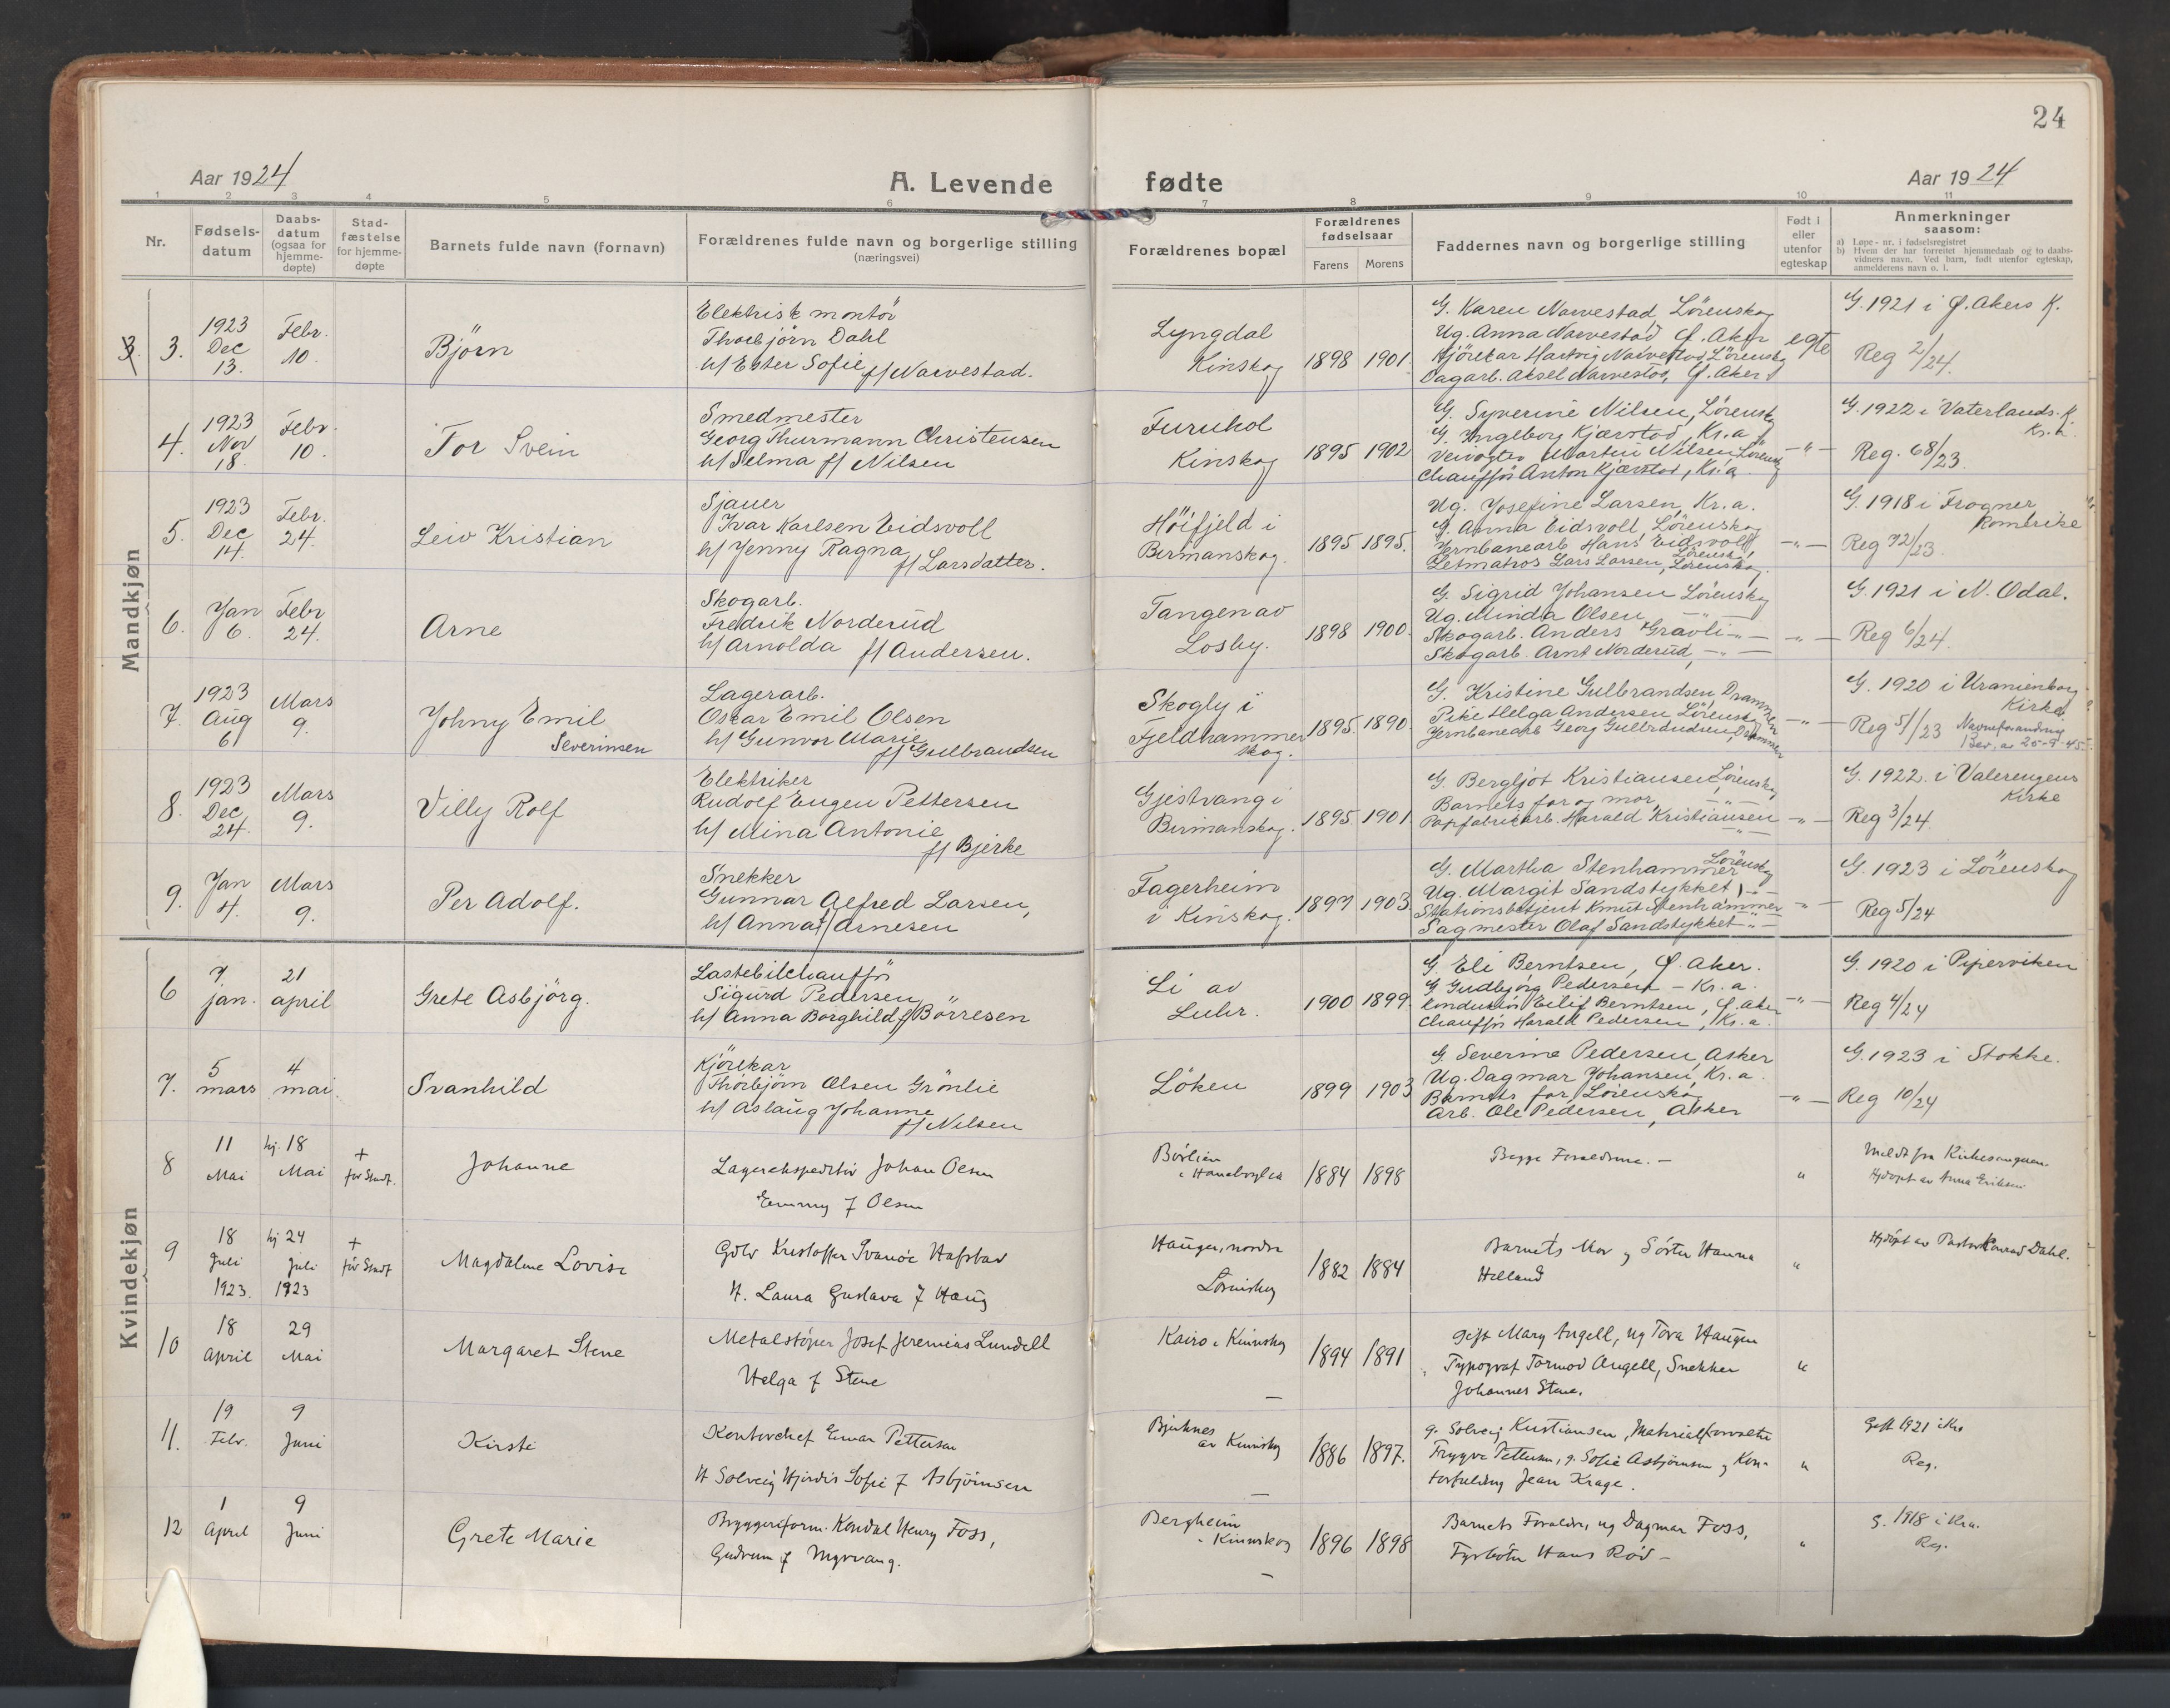 24
Aar 1924
A. Levende fødte
Aar 1924
1 2 3 4 5 6 7 8 9 10 11
Nr.
Fødsels-
datum
Daabs-
datum
(ogsaa for
hjemme-
døpte)
Stad-
fæstelse
for hjemme-
døpte
Barnets fulde navn (fornavn)
Forældrenes fulde navn og borgerlige stilling
(næringsvei)
Forældrenes bopæl
Forældrenes
fødselsaar
Farens Morens
Faddernes navn og borgerlige stilling
Født i
eller
utenfor
egteskap
Anmerkninger
saasom:
a) Løpe-nr. i fødselsregistret
b) Hvem der har forrettet hjemmedaab og to daabs-
vidners navn. Ved barn, født utenfor egteskap,
anmelderens navn o. l.
Mandkjøn
3. 3.
1923
Dec
13.
Febr.
10.
Björn
Elektrisk montör
Thorbjörn Dahl
h/ Ester Sofie f/ Narvestad.
Lyngdal
Kinskog
1898 1901.
G. Karen Narvestad, Lörenskog
Ug. Anna Narvestad Ø. Aker
Kjörekar Hartvig Narvestad, Lörenskog
Dagarb. Aksel Narvestad, Ø. Aker
egte
G. 1921 i Ø. Akers K.
Reg 2/24.
4.
1923
Nov
18.
Febr.
10.
Tor Svein
Smedmester
Georg Thurmann Christensen
h/ Selma f/ Nilsen
Furuhol
Kinskog
1895 1902
G. Syverine Nilsen, Lörensk
G. Ingeborg Kjærstad, Kr.a
Veivogter Martin Nilsen Lörensk
Chauffør Anton Kjærstad, Kr.a
— " —
G. 1922 i Vaterlands. K.
Kr.a.
Reg. 68/23.
5.
1923
Dec
14.
Febr.
24.
Leiv Kristian
Sjauer
Ivar Karlsen Eidsvoll
h/ Jenny Ragna f/ Larsdatter.
Höifjeld i
Bermanskog.
1895 1895.
Ug. Josefine Larsen, Kr.a.
G. Anna Eidsvoll Lörenskog
Jernbanearb Hans Eidsvoll
Letmatros Lars Larsen, Lörenskog.
— " —
G. 1918 i Frogner
Romerike
Reg 72/23.
6.
Jan
6.
Febr
24.
Arne
Skogarb.
Fredrik Norderud
h/ Arnolda f/ Andersen.
Tangen av
Losby.
1898 1900.
G. Sigrid Johansen Lörenskog
Ug. Minda Olsen — " —
Skogarb. Anders Gravli — " —
Skogarb. Arnt Norderud, — " —
— " —
G. 1921 i N. Odal.
Reg 6/24.
7.
1923
Aug
6
Mars
9.
Johny Emil
Severinsen
Lagerarb.
Oscar Emil Olsen
h/ Gunvor Marie
f/ Gulbrandsen
Skogly i
Fjeldhammer
skog.
1895 1890.
G. Kristine Gulbrandsen, Drammen
Pike Helga Andersen Lörenskog
Jernbanearb Georg Gulbrandsen, Drammen
— " —
G. 1920 i Uranienborg
Kirke.
Reg 51/23 Navneforandring
Bev. av 25-9-45.
8.
1923
Dec
24.
Mars
9.
Villy Rolf
Elektriker
Rudolf Eugen Pettersen
h/ Mina Antonie
f/ Bjerke
Gjestvang i
Birmanskog.
1895 1901
G. Bergljot Kristiansen, Lörenskog
Barnets far og mor — " —
Papfabrikarb. Harald Kristiansen
— " —
— " —
G. 1922. i Valerengens
Kirke
Reg 3/24.
9.
Jan
4.
Mars
9.
Per Adolf.
Snekker
Gunnar Alfred Larsen,
h/ Anna f/ Arnesen
Fagerheim
i Kinskog.
1897 1903
G. Martha Stenhammer Lörenskog
Ug. Margit Sandstykket — " —
Stationsbetjent Knut Stenhammer
Sagmester Olaf Sandstykket — " —
— " —
G. 1923 i Lörenskog
Reg 5/24
Kvindekjøn
6
7
jan.
21
april
Grete Asbjörg.
Lastebilchauffør
Sigurd Pedersen
h/ Anna Borghild f/ Börresen
Li av
Luhr.
1900 1899.
G Eli Berntsen, Ø. Aker.
G Gudbjörg Pedersen — Kr.a.
Konduktör Eilif Berntsen, Ø. Aker
Chaufför Harald Pedersen, Kr.a.
— " —
G. 1920 i Piperviken
Reg 4/24
7.
5
mars
4
mai.
Svanhild
Kjörekar
Thorbjörn Olsen Grönlie
h/ Aslaug Johanne
f/ Nilsen
Löken
1899 1903
G. Severine Pedersen, Asker
Ug. Dagmar Johansen, Kr.a.
Barnets far, Lörenskog
Arb. Ole Pedersen, Asker
— " —
G. 1923 i Stokke.
Reg 10/24
8
11
Mai
hj. 18
Mai
+
før Stadf.
Johanne
Lagerekspeditør Johan Olsen
Emmy f Olsen
1884 1898
Begge Forældrene. —
"
Meldt fra Kirkesangeren.
Hjdøpt av Anna Eriksen
9
18
Juli
1923.
hj 24
Juli
1923
+
før Stadf
Magdalene Lovise
Hafstad
H. Laura Gustava f Haug
Haugen, nordre
Lörenskog
1882 1884
Barnets Mor og Søster Hanna
Helland
"
Hjdøpt av Pastor Konrad Dahl.
10
18
April
29
Mai
Margaret Stene
Metalstøper Josef Jeremias Lundell
Helga f Stene
Kairo i Kinnskog
1894 1891
Gift Mary Angell, ug Tora Haugen
Typograf Tormod Angell, Snekker
Johannes Stene.
"
11.
19
Febr.
9
Juni
Kirsti
Kontorchef Einar Pettersen
H Solveig Hjørdis Sofie f Asbjörnsen
av Kinnskog
1886 1897.
g. Solveig Kristiansen, Materialforvalter
Trygve Pettersen, g. Sofie Asbjørnsen og Kon-
torfuldmg Jean Krage.
"
Gift 1921 i Kra
Reg.
12
1
April
9
Juni
Grete Marie
Bryggeriform. Kondal Henry Foss,
Gudrun f Myrvang.
Bergheim
i Kinnskog
1896 1898
Barnets Forældre, ug Dagmar Foss,
Fyrbøter Hans Rød —
"
g. 1918 i Kra.
Reg.